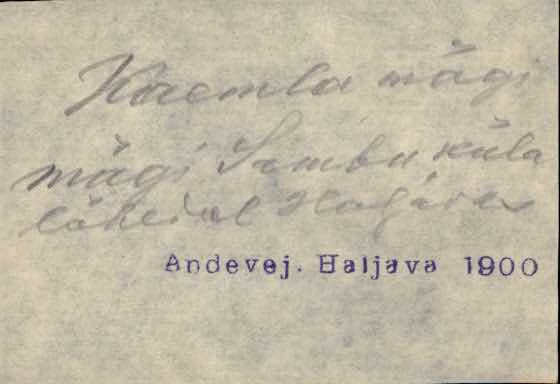 Kaemla mägi
mägi Simbu küla
lähedal Haljava
Andevej. Haljava 1900